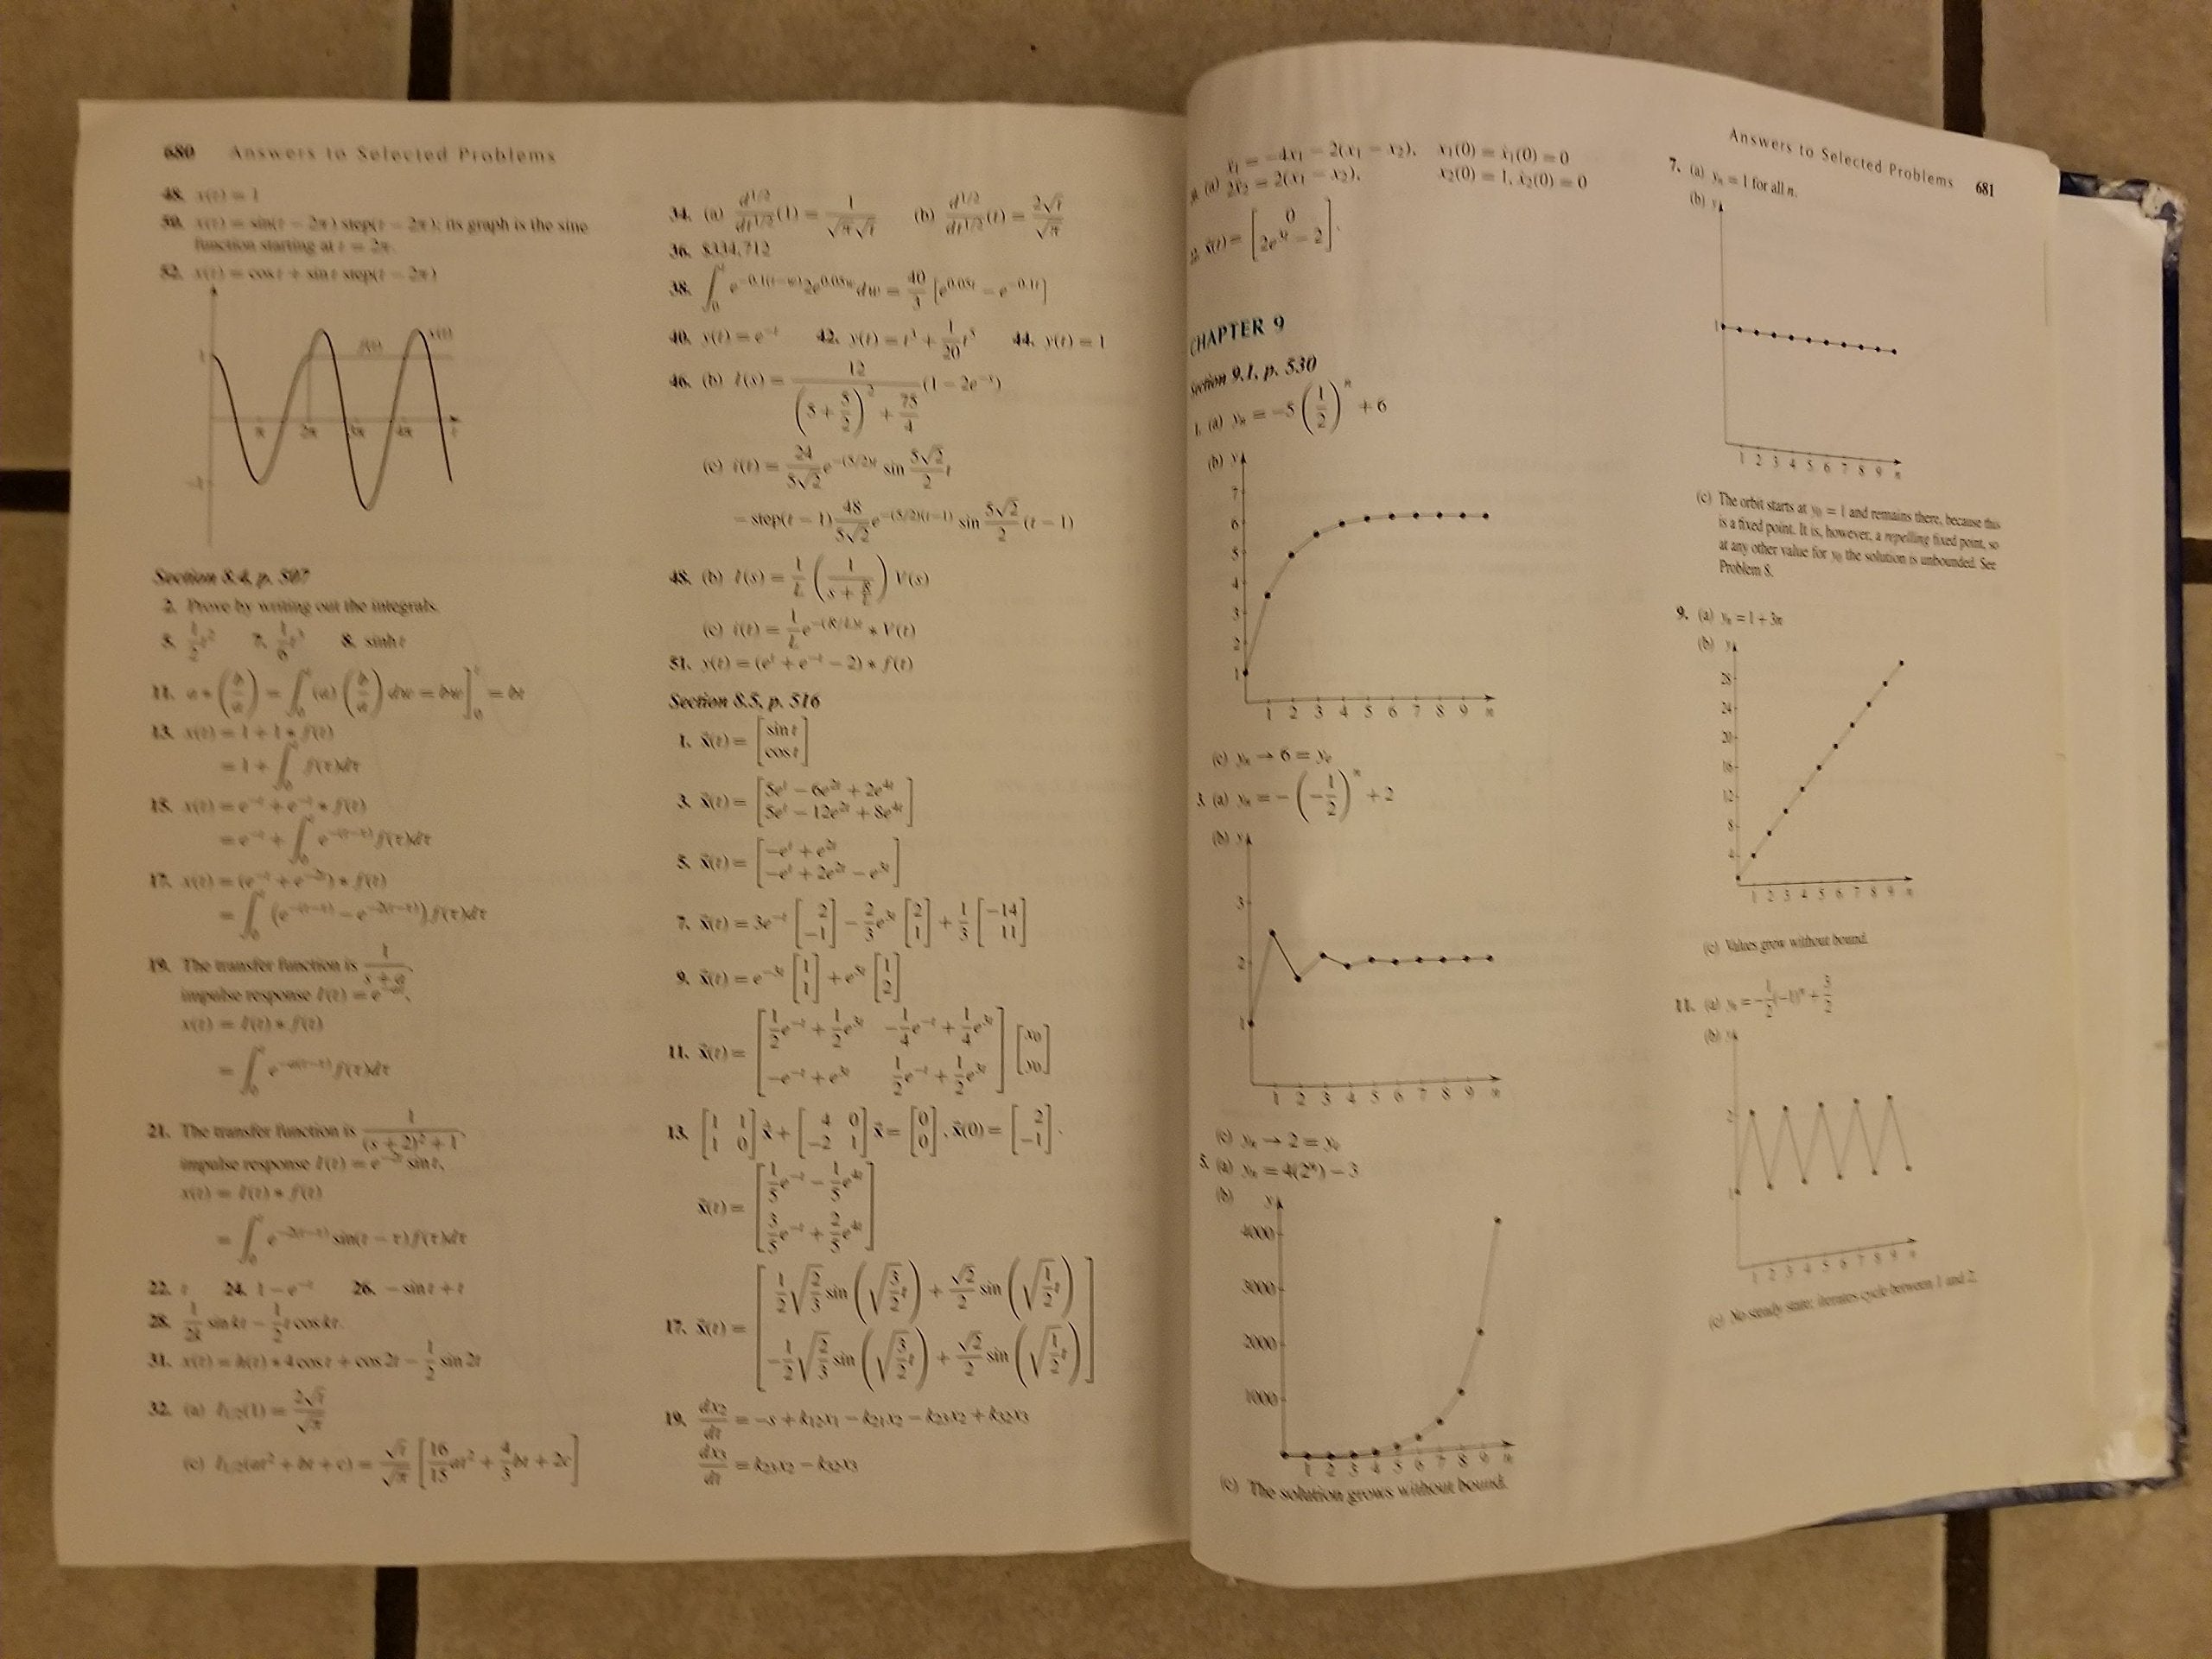 680 Answers to Selected Problems
48. x(t) = 1
50. x(t) = sin(t − 2π) step(t − 2π); its graph is the sine
function starting at t = 2π.
52. x(t) = cos t + sin t step(t − 2π)
x(t)
f(t)
1
π 2π 3π 4π t
−1
Section 8.4, p. 507
2. Prove by writing out the integrals.
5. 1/2 t² 7. 1/6 t³ 8. sinh t
11. a * (b/a) = ∫₀ᵗ (a)(b/a) dw = bw]₀ᵗ = bt
13. x(t) = 1 + 1 * f(t)
= 1 + ∫₀ᵗ f(τ)dτ
15. x(t) = e^{−t} + e^{−t} * f(t)
= e^{−t} + ∫₀ᵗ e^{−(t−τ)} f(τ)dτ
17. x(t) = (e^{−t} + e^{−2t}) * f(t)
= ∫₀ᵗ (e^{−(t−τ)} − e^{−2(t−τ)}) f(τ)dτ
19. The transfer function is 1/(s + a),
impulse response I(t) = e^{−at},
x(t) = I(t) * f(t)
= ∫₀ᵗ e^{−a(t−τ)} f(τ)dτ
21. The transfer function is 1/((s + 2)² + 1),
impulse response I(t) = e^{−2t} sin t,
x(t) = I(t) * f(t)
= ∫₀ᵗ e^{−2(t−τ)} sin(t − τ) f(τ)dτ
22. t 24. 1 − e^{−t} 26. − sin t + t
28. 1/2k sin kt − 1/2 t cos kt.
31. x(t) = h(t) * 4 cos t + cos 2t − 1/2 sin 2t
32. (a) I_{1/2}(1) = 2√t/√π
(c) I_{1/2}(at² + bt + c) = √t/√π [16/15 at² + 4/3 bt + 2c]
34. (a) d^{1/2}/dt^{1/2} (1) = 1/(√π √t) (b) d^{1/2}/dt^{1/2} (t) = 2√t/√π
36. $334,712
38. ∫₀ᵗ e^{−0.1(t−w)} 2e^{0.05w} dw = 40/3 [e^{0.05t} − e^{−0.1t}]
40. y(t) = e^{−t} 42. y(t) = t³ + 1/20 t⁵ 44. y(t) = 1
46. (b) I(s) = 12/((s + 5/2)² + 75/4) (1 − 2e^{−s})
(c) i(t) = 24/(5√2) e^{−(5/2)t} sin 5√2/2 t
− step(t − 1) 48/(5√2) e^{−(5/2)(t−1)} sin 5√2/2 (t − 1)
48. (b) I(s) = 1/L (1/(s + R/L)) V(s)
(c) i(t) = 1/L e^{−(R/L)t} * V(t)
51. y(t) = (e^t + e^{−t} − 2) * f(t)
Section 8.5, p. 516
1. x⃗(t) = [sin t; cos t]
3. x⃗(t) = [5e^t − 6e^{2t} + 2e^{4t}; 5e^t − 12e^{2t} + 8e^{4t}]
5. x⃗(t) = [−e^t + e^{2t}; −e^t + 2e^{2t} − e^{3t}]
7. x⃗(t) = 3e^{−t} [2; −1] − 2/3 e^{3t} [2; 1] + 1/3 [−14; 11]
9. x⃗(t) = e^{−3t} [1; 1] + e^{5t} [1; 2]
11. x⃗(t) = [1/2 e^{−t} + 1/2 e^{3t} −1/4 e^{−t} + 1/4 e^{3t}; −e^{−t} + e^{3t} 1/2 e^{−t} + 1/2 e^{3t}] [x₀; y₀]
13. [1 1; 1 0] x⃗̇ + [4 0; −2 1] x⃗ = [0; 0], x⃗(0) = [2; −1].
x⃗(t) = [1/5 e^{−t} − 1/5 e^{4t}; 3/5 e^{−t} + 2/5 e^{4t}]
17. x⃗(t) = [1/2 √(2/3) sin(√(3/2) t) + √2/2 sin(√(1/2) t); −1/2 √(2/3) sin(√(3/2) t) + √2/2 sin(√(1/2) t)]
19. dx₂/dt = −s + k₁₂x₁ − k₂₁x₂ − k₂₃x₂ + k₃₂x₃
dx₃/dt = k₂₃x₂ − k₃₂x₃
Answers to Selected Problems 681
(a) ẍ₁ = −4x₁ − 2(x₁ − x₂), x₁(0) = ẋ₁(0) = 0
2ẍ₂ = 2(x₁ − x₂), x₂(0) = 1, ẋ₂(0) = 0
x⃗(t) = [0; 2e^{3t} − 2].
CHAPTER 9
Section 9.1, p. 530
1. (a) yₙ = −5(1/2)ⁿ + 6
(b) y
7
6
5
4
3
2
1
1 2 3 4 5 6 7 8 9 n
(c) yₙ → 6 = yₑ
3. (a) yₙ = −(−1/2)ⁿ + 2
(b) y
3
2
1
1 2 3 4 5 6 7 8 9 n
(c) yₙ → 2 = yₑ
5. (a) yₙ = 4(2ⁿ) − 3
(b) y
4000
3000
2000
1000
1 2 3 4 5 6 7 8 9 n
(c) The solution grows without bound.
7. (a) yₙ = 1 for all n.
(b) y
1
1 2 3 4 5 6 7 8 9 n
(c) The orbit starts at y₀ = 1 and remains there, because this
is a fixed point. It is, however, a repelling fixed point, so
at any other value for y₀ the solution is unbounded. See
Problem 8.
9. (a) yₙ = 1 + 3n
(b) y
28
24
20
16
12
8
4
1 2 3 4 5 6 7 8 9 n
(c) Values grow without bound.
11. (a) yₙ = −1/2(−1)ⁿ + 3/2
(b) y
2
1
1 2 3 4 5 6 7 8 9 n
(c) No steady state; iterates cycle between 1 and 2.